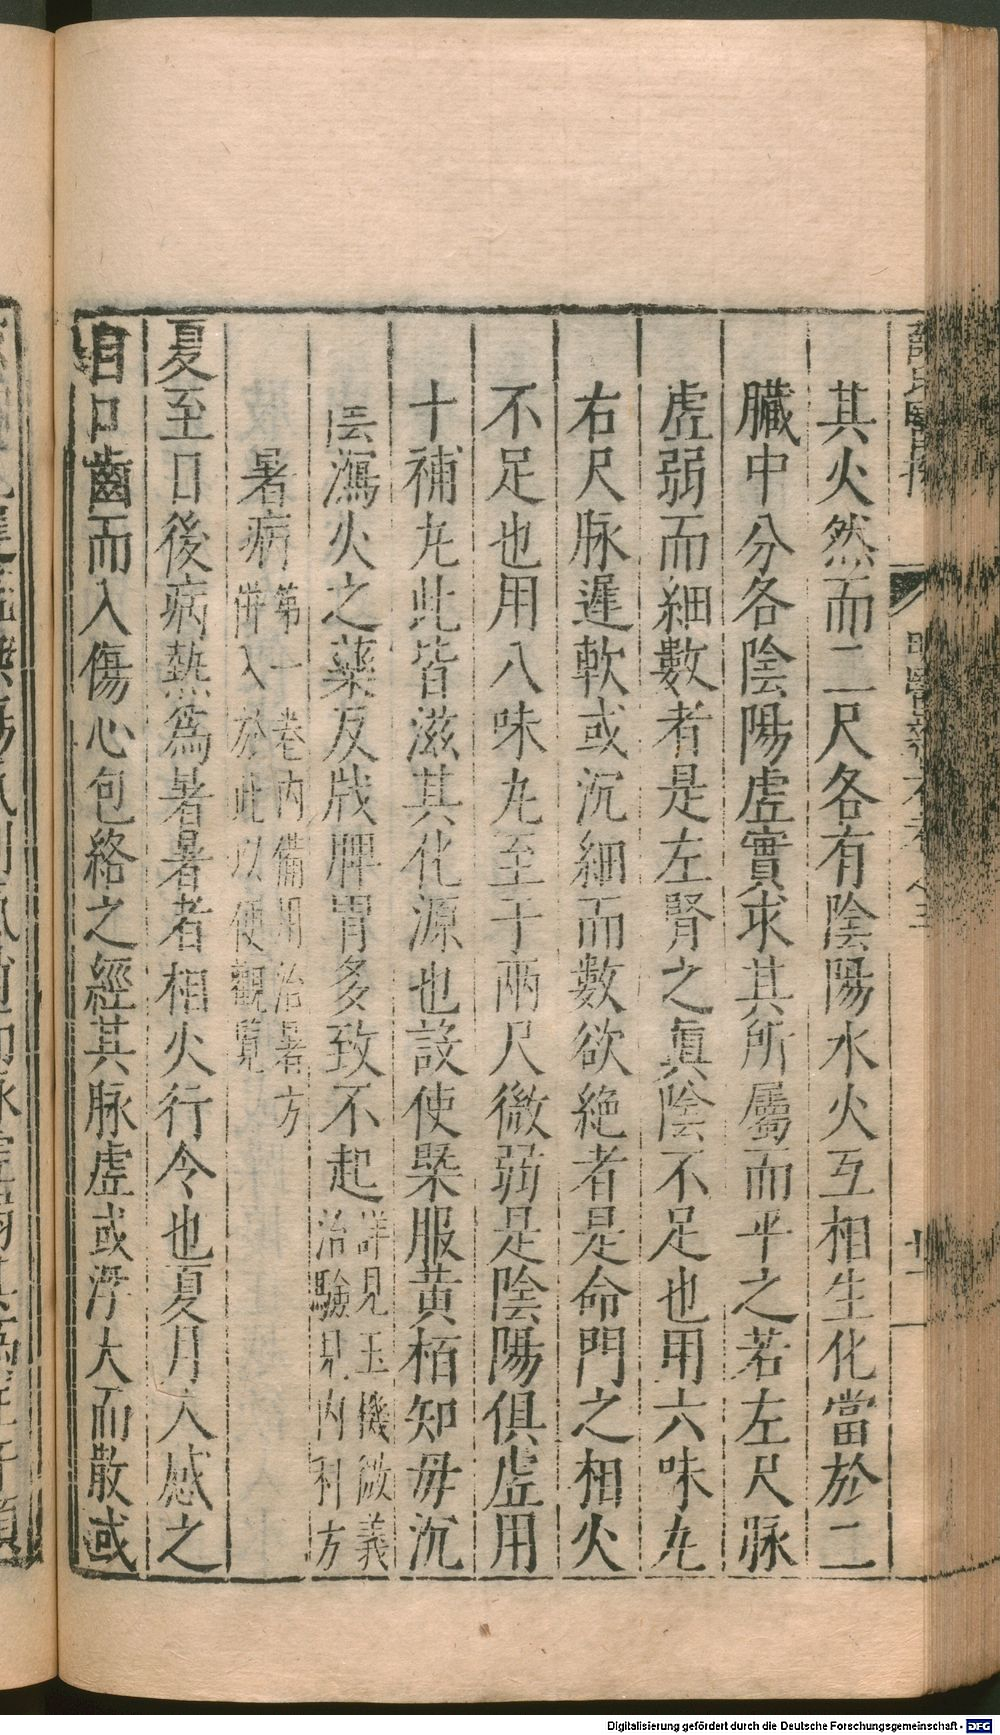 其火然而二尺各有陰陽水火互相生化當於二
臟中分各陰陽虛實求其所屬而平之若左尺脉
虛弱而細數者是左腎之眞陰不足也用六味丸
右尺脉遲軟或沉細而數欲絶者是命門之相火
不足也用八味丸至于兩尺微弱是陰陽俱虛用
十補丸此皆滋其化源也設使槩服黄栢知毋沉
瀉火之藥反戕脾胃多致不起詳見玉機微義
治驗見内科方
暑病第一卷内備用治暑方
併入於此以便觀覽
夏至日後病熱爲暑暑者相火行令也夏月人感之
自口齒而入傷心包絡之經其脉虛或浮大而散或
Digitalisierung gefördert durch die Deutsche Forschungsgemeinschaft - DFG